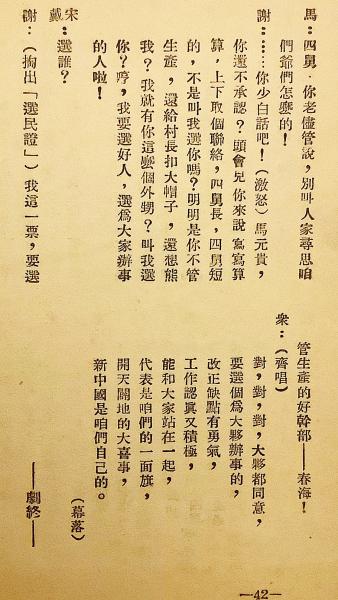 馬：四舅，你老儘管說，別叫人家尋思咱
們爺們怎麽的！
謝：……你少白話吧！（激怒）馬元貴，
你還不承認？頭會兒你來說寫寫算
算，上下取個聯絡，四舅長，四舅短
的，不是叫我選你嗎？明明是你不管
生產，還給村長扣大帽子，還想熊
我？我就有你這麽個外甥？叫我選
你？哼，我要選好人，選爲大家辦事
的人啦！
宋
戴：選誰？
謝：（掏出「選民證」）我這一票，要選
管生產的好幹部——春海！
衆：（齊唱）
對，對，對，大夥都同意，
要選個爲大夥辦事的，
改正缺點有勇氣，
工作認眞又積極，
能和大家站在一起，
代表是咱們的一面旗，
開天闢地的大喜事，
新中國是咱們自己的。
（幕落）
——劇終——
—42—